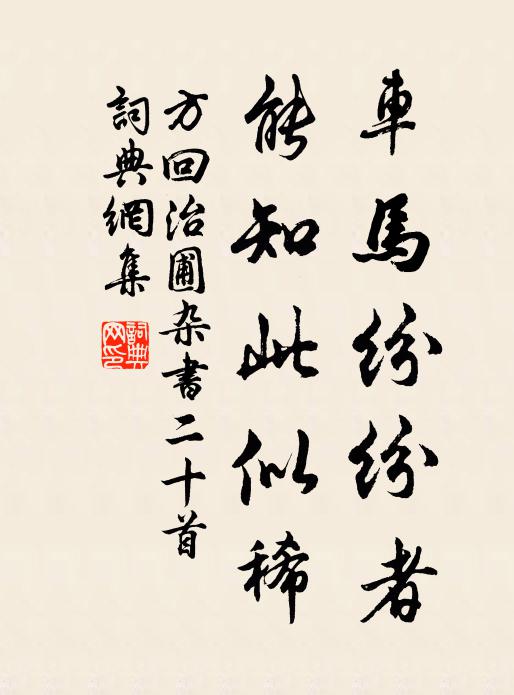 車馬紛紛者
能知此似稀
方回治圃杂書二十首
詞典網集
詞典网印